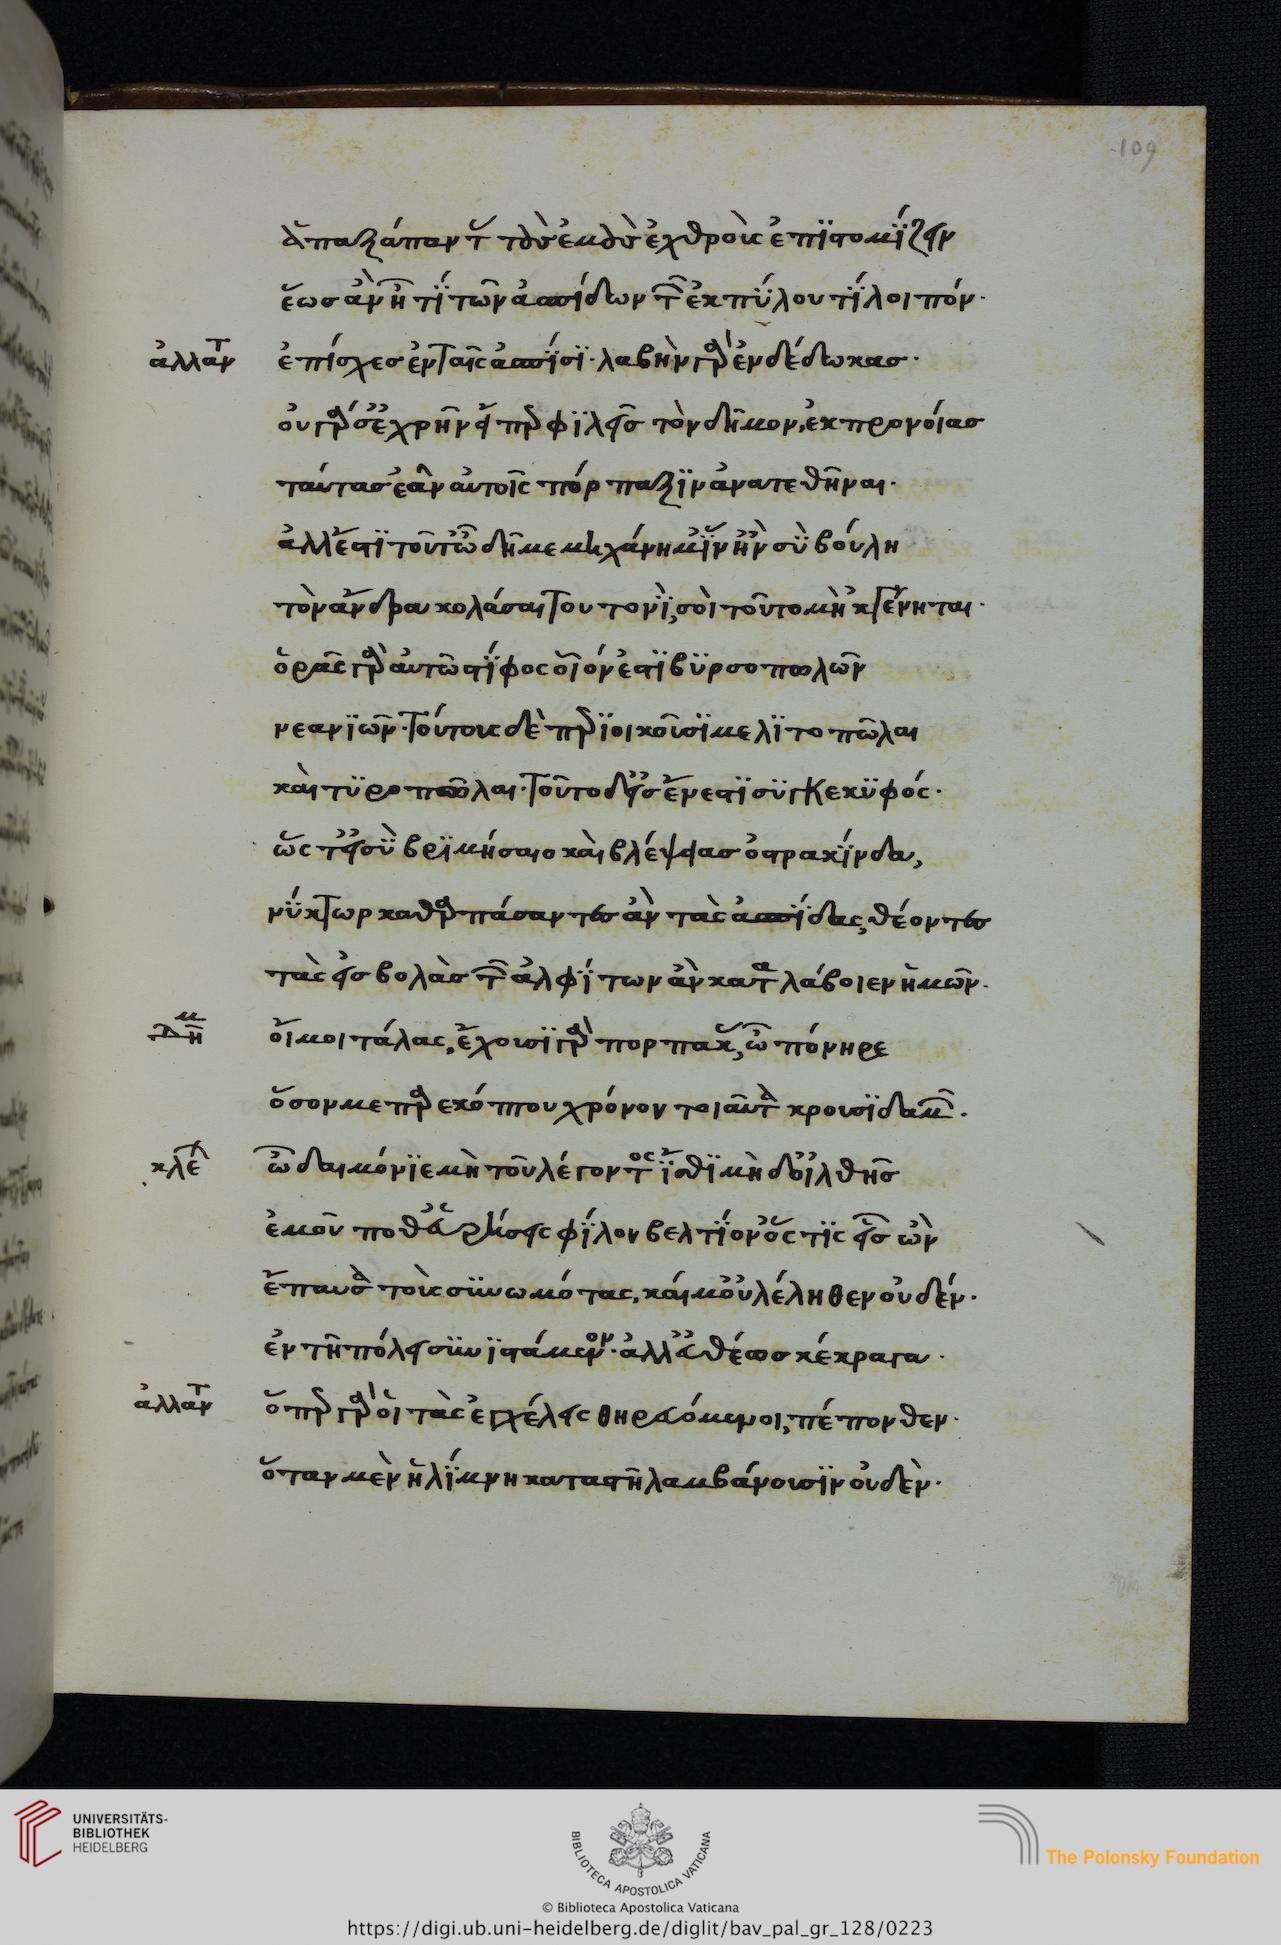 ἅπαξάπαντας τοὺς ἐμοὺς ἐχθροὺς ἐπϊστομΐζειν
ἕως ἂν ᾖ τΐ τῶν ἀσπίδων τῶν ἐκ πΰλου τΐ λοιπόν·
ἀλλαντ ἐπίσχες ἐν ταῖς ἀσπΐσϊ· λαβὴν γὰρ ἐνδέδωκας·
οὐ γάρ σ' ἐχρῆν εἴπερ φϊλεῖς τὸν δῆμον, ἐκ προνοίας
ταύτας ἐᾶν αὐτοῖς πόρπαξϊν ἀνατεθῆναι·
ἀλλ' ἔστϊ τοῦτ' ὦ δῆμε μηχάνημ' ἵν' ἢν σὺ βούλη
τὸν ἄνδρα κολάσαι τουτονὶ, σοὶ τοῦτο μὴ 'κγένηται·
ὁρᾶς γὰρ αὐτῶ στΐφος οἷόν ἐστϊ βϋρσοπωλῶν
νεανϊῶν· τούτοις δὲ πέρϊοικοῦσϊ μελϊτοπῶλαι
καὶ τϋροπῶλαι· τοῦτο δ' εἰς ἕν ἐστϊ σϋγκεκϋφός·
ὥστ' εἰ σὺ βρϊμήσαιο καὶ βλέψειας ὀστρακΐνδα,
νΰκτωρ καθαρπάσαντες ἂν τὰς ἀσπΐδας, θέοντες
τὰς εἰσβολὰς τῶν ἀλφΐτων ἂν καταλάβοιεν ἡμῶν·
δημ οἴμοι τάλας, ἔχουσϊ γὰρ πόρπακας, ὦ πόνηρε
ὅσον με παρεκόπτου χρόνον τοιαῦτα κρουσϊδημῶν.
κλέ ὦ δαιμόνϊε μὴ τοῦ λέγοντος ἴσθϊ μὴ δ' οἰηθῆς
ἐμοῦ ποθ' εὑρήσεις φΐλον βελτΐον' ὅστϊς εἷς ὢν
ἔπαυσα τοὺς σϋνωμότας, καί μ' οὐ λέληθεν οὐδέν·
ἐν τῆ πόλει σϋνϊστάμενον· ἀλλ' εὐθέως κέκραγα·
ἀλλαντ ὅπερ γὰρ οἱ τὰς ἐγχέλεις θηρώμενοι, πέπονθεν·
ὅταν μὲν ἡ λΐμνη καταστῆ λαμβάνουσϊν οὐδὲν·
109
UNIVERSITÄTS-
BIBLIOTHEK
HEIDELBERG
BIBLIOTECA APOSTOLICA VATICANA
The Polonsky Foundation
© Biblioteca Apostolica Vaticana
https://digi.ub.uni-heidelberg.de/diglit/bav_pal_gr_128/0223